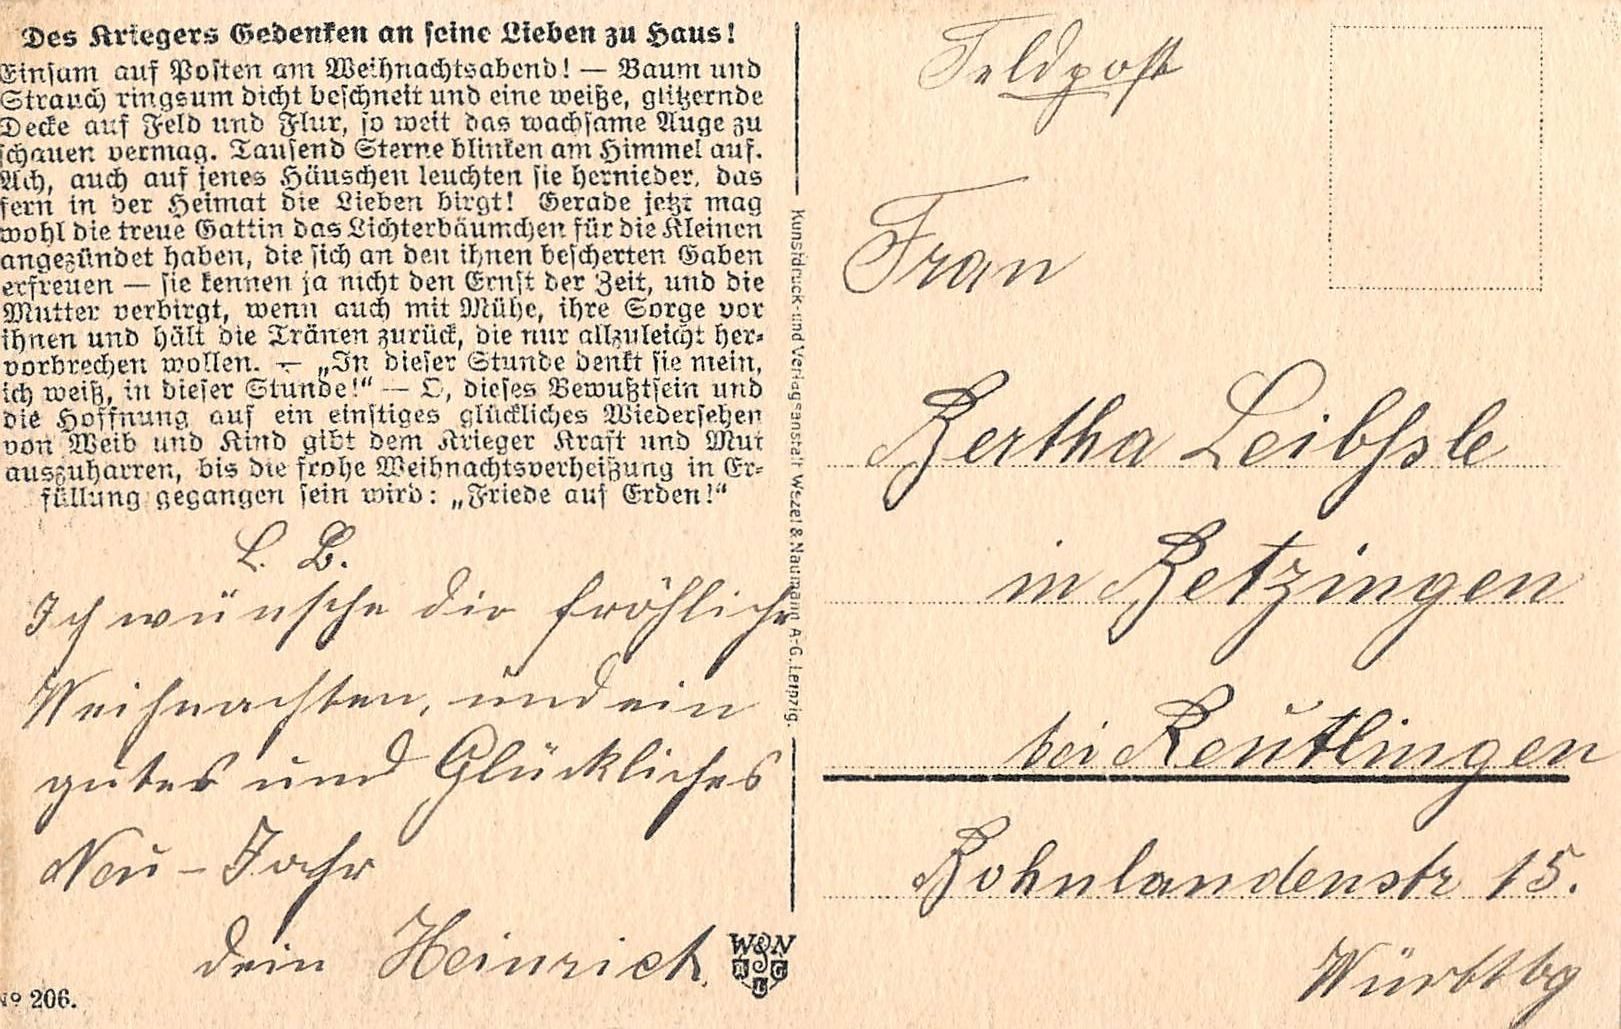 Des Kriegers Gedenken an seine Lieben zu Haus!
Einsam auf Posten am Weihnachtsabend! — Baum und
Strauch ringsum dicht beschneit und eine weiße, glitzernde
Decke auf Feld und Flur, so weit das wachsame Auge zu
schauen vermag. Tausend Sterne blinken am Himmel auf.
Ach, auch auf jenes Häuschen leuchten sie hernieder, das
fern in der Heimat die Lieben birgt! Gerade jetzt mag
wohl die treue Gattin das Lichterbäumchen für die Kleinen
angezündet haben, die sich an den ihnen bescherten Gaben
erfreuen — sie kennen ja nicht den Ernst der Zeit, und die
Mutter verbirgt, wenn auch mit Mühe, ihre Sorge vor
ihnen und hält die Tränen zurück, die nur allzuleicht her-
vorbrechen wollen. — „In dieser Stunde denkt sie mein,
ich weiß, in dieser Stunde!“ — O, dieses Bewußtsein und
die Hoffnung auf ein einstiges glückliches Wiedersehen
von Weib und Kind gibt dem Krieger Kraft und Mut
auszuharren, bis die frohe Weihnachtsverheißung in Er-
füllung gegangen sein wird: „Friede auf Erden!“
L. B.
Ich wünsche dir fröhliche
Weihnachten, und ein
gutes und Glückliches
Neu-Jahr
dein Heinrich.
No 206.
W&N
A G
L
Kunstdruck- und Verlagsanstalt Wezel & Naumann A.-G. Leipzig.
Feldpost
Frau
Bertha Leibssle
in Betzingen
bei Reutlingen
Bohnlandenstr 15.
Württbg